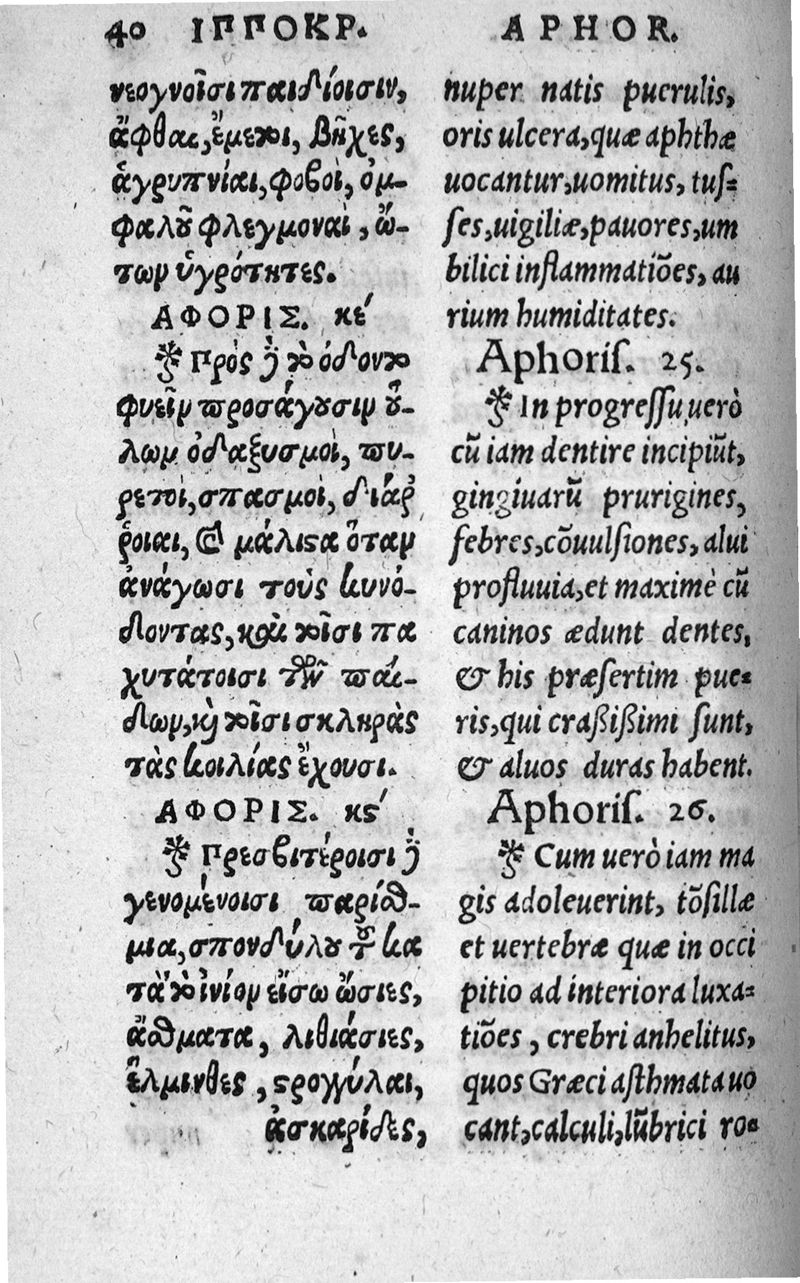 40 ΙΠΠΟΚΡ. APHOR.
νεογνοῖσι παιδίοισιν,
ἄφθαι, ἔμετοι, βῆχες,
ἀγρυπνίαι, φόβοι, ὀμ-
φαλοῦ φλεγμοναὶ, ὤ-
των ὑγρότητες.
ΑΦΟΡΙΣ. κε´
Πρὸς δὲ τὸ ὀδοντο
φυεῖν προσάγουσιν οὔ-
λων ὀδαξυσμοὶ, πυ-
ρετοὶ, σπασμοὶ, διάῤ
ῥοιαι, καὶ μάλιστα ὅταν
ἀνάγωσι τοὺς κυνό-
δοντας, καὶ τοῖσι πα
χυτάτοισι τῶν παί-
δων, καὶ τοῖσι σκληρὰς
τὰς κοιλίας ἔχουσι.
ΑΦΟΡΙΣ. κϛ´
Πρεσβυτέροισι δὲ
γενομένοισι παρίσθ-
μια, σπονδύλου τοῦ κα
τὰ τὸ ἰνίον εἴσω ὤσιες,
ἄσθματα, λιθιάσιες,
ἕλμινθες, στρογγύλαι,
ἀσκαρίδες,
nuper natis puerulis,
oris ulcera, quæ aphthæ
uocantur, uomitus, tuſ-
ſes, uigiliæ, pauores, um
bilici inflammatiões, au
rium humiditates.
Aphoriſ. 25.
In progreſſu uerò
cũ iam dentire incipiũt,
gingiuarũ prurigines,
febres, cõuulſiones, alui
profluuia, et maximè cũ
caninos ædunt dentes,
& his præſertim pue-
ris, qui craßißimi ſunt,
& aluos duras habent.
Aphoriſ. 26.
Cum uerò iam ma
gis adoleuerint, tõſillæ
et uertebræ quæ in occi
pitio ad interiora luxa-
tiões, crebri anhelitus,
quos Græci aſthmata uo
cant, calculi, lũbrici ro-